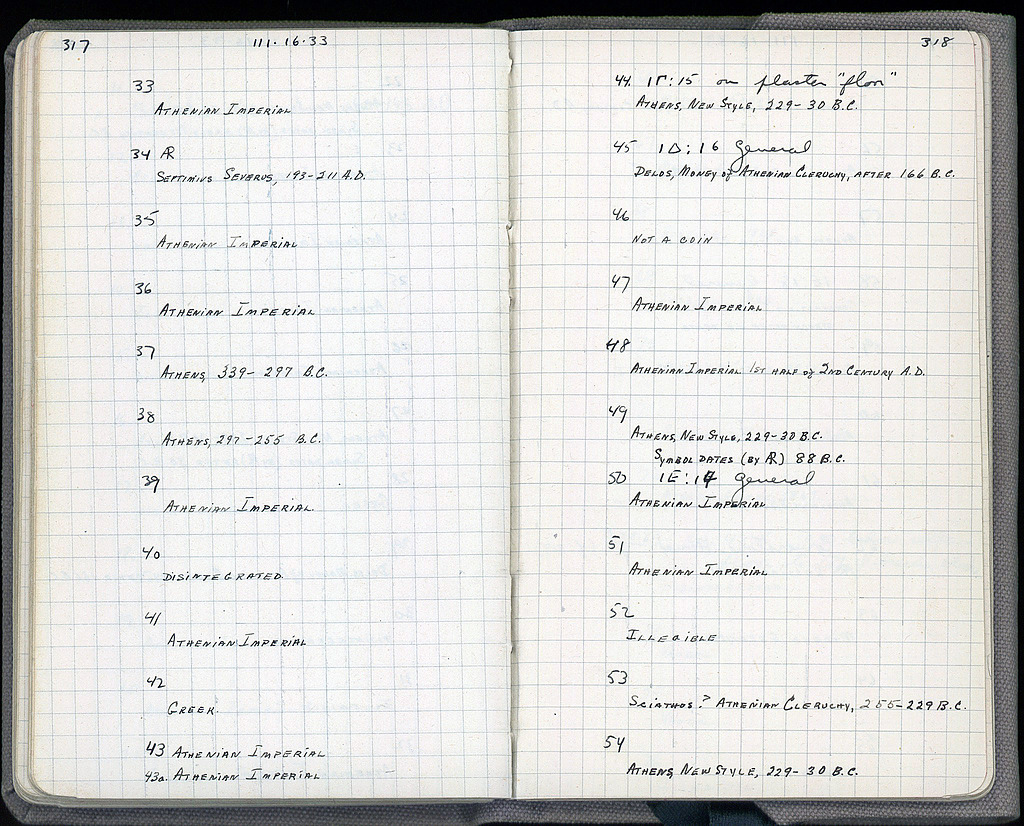 317
111·16·33
33
ATHENIAN IMPERIAL
34 AR
SEPTIMIUS SEVERUS, 193-211 A.D.
35
ATHENIAN IMPERIAL
36
ATHENIAN IMPERIAL
37
ATHENS, 339- 297 B.C.
38
ATHENS, 297-255 B.C.
39
ATHENIAN IMPERIAL.
40
DISINTEGRATED.
41
ATHENIAN IMPERIAL
42
GREEK.
43 ATHENIAN IMPERIAL
43a. ATHENIAN IMPERIAL
318
44 1Γ:15 on plaster "floor"
ATHENS, NEW STYLE, 229-30 B.C.
45 1Δ:16 General
DELOS, MONEY of ATHENIAN CLERUCHY, AFTER 166 B.C.
46
NOT A COIN
47
ATHENIAN IMPERIAL
48
ATHENIAN IMPERIAL 1ST HALF of 2ND CENTURY A.D.
49
ATHENS, NEW STYLE, 229-30 B.C.
SYMBOL DATES (BY AR) 88 B.C.
50 1E:17 General
ATHENIAN IMPERIAL
51
ATHENIAN IMPERIAL
52
ILLEGIBLE
53
SCIATHOS? ATHENIAN CLERUCHY, 255-229 B.C.
54
ATHENS, NEW STYLE, 229-30 B.C.